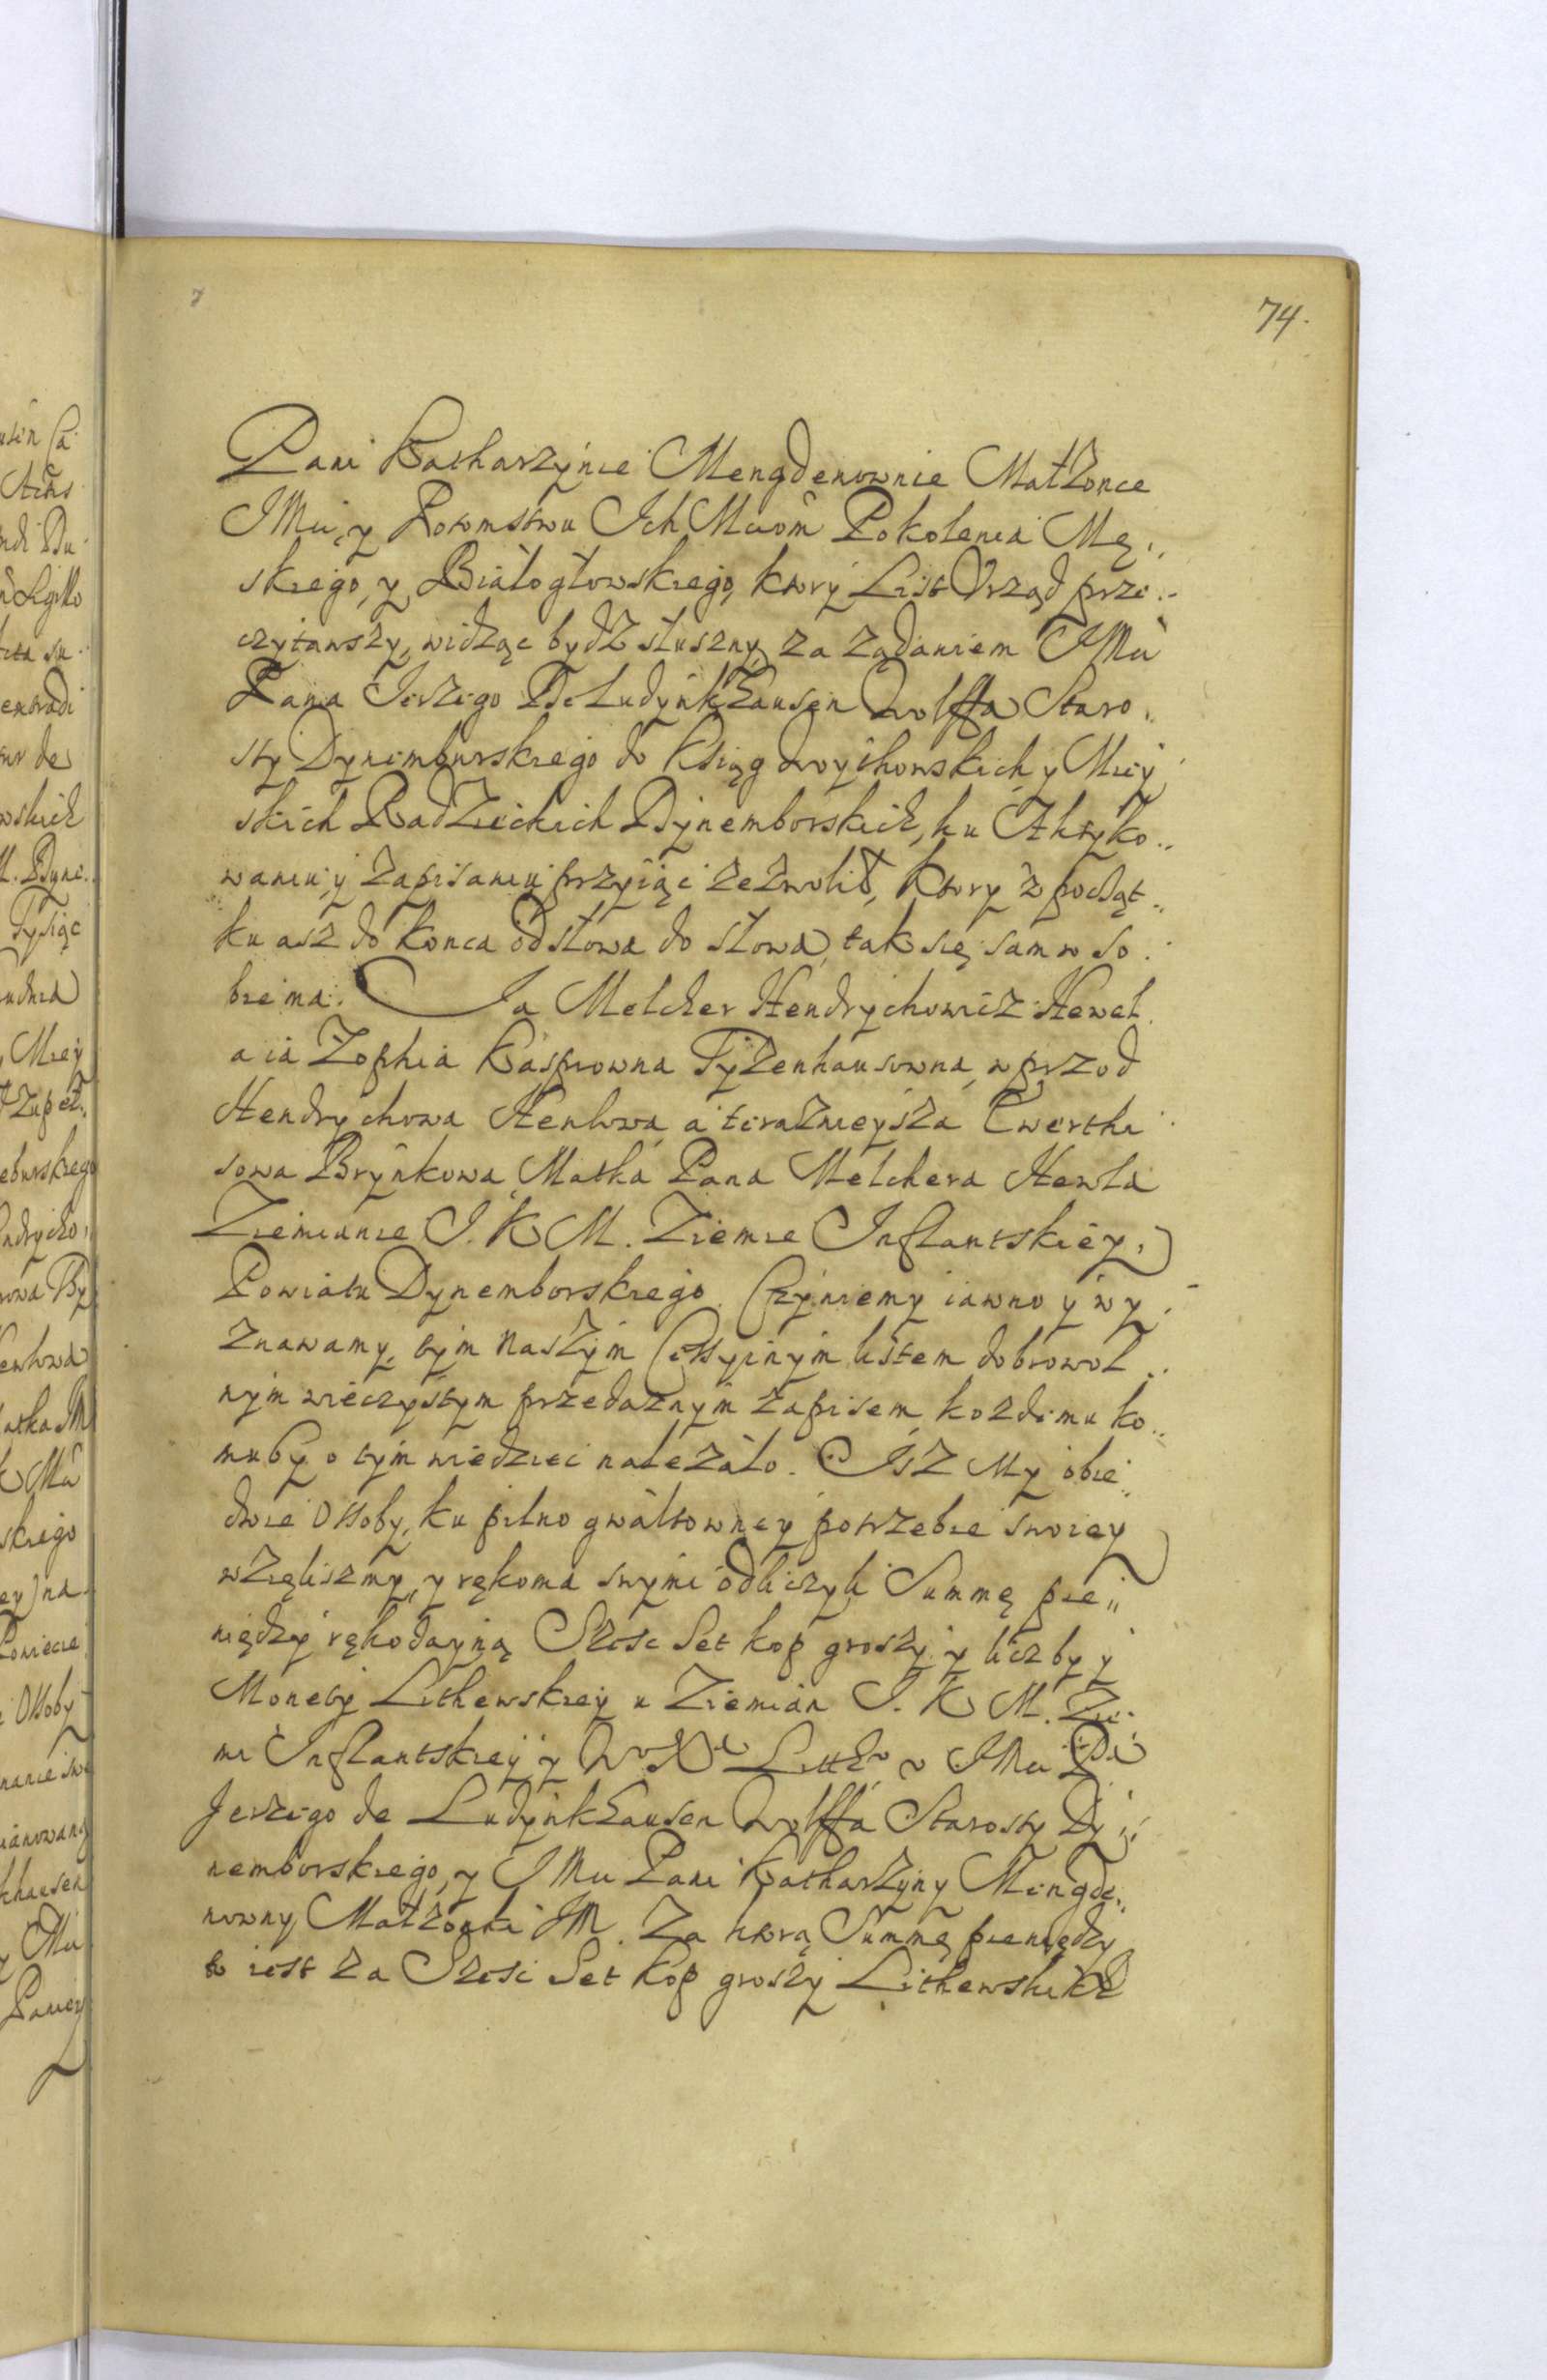 74.
Pani Katharzynie Mengdenownie Małżonce
JMci, y Potomstwu Ich Mciom Pokolenia Mę„
skiego, y Białogłowskiego, ktory List Vrząd prze„
czytawszy, widząc bydz słuszny, za ządaniem JMci
Pana Jerzego De Ludynkhausen Wolffa Staro„
sty Dynemburskiego do Ksiąg Woythowskich y Miey
skich Radzieckich Dynemborskich, ku Aktyko„
waniu y Zapisaniu przyiąc zezwolił, Ktory z począt„
ku asz do konca od słowa do słowa, tak się sam w so„
bie ma. Ja Melcher Hendrychowicz Hewel
a ia Zophia Kasprowna Tyzenhausowna, wprzod
Hendrychowa Hewlowa, a teraznieysza Ewerthi
sowa Brynkowa, Matka Pana Melchera Hewla
Ziemianie J. K M. Ziemie Inflantskiey,
Powiatu Dynemborskiego. Czyniemy iawno y wy„
znawamy, tym naszym Cessyinym listem dobrowol„
nym wieczystym przedaznym zapisem, kozdemu ko„
muby o tym wiedziec nalezało. Isz My obie„
dwie Ossoby, ku pilno gwałtowney potrzebie swoiey
wzięliszmy, y rękoma swymi odliczyli Summę pie„
niędzy rękodayną Szesc Set kop groszy y liczby y
Monety Lithewskiey u Ziemian J. K M. Zie„
mi Inflantskiey y u JMci Pa
Jerzego de Ludynkhausen Wolffa Starosty Dy„
nemborskiego, y JMci Pani Katharzyny Mengde„
nowny Małżonki JM. Za ktorą Summę pieniędzy
to iest za Szesc Set Kop groszy Lithewskich